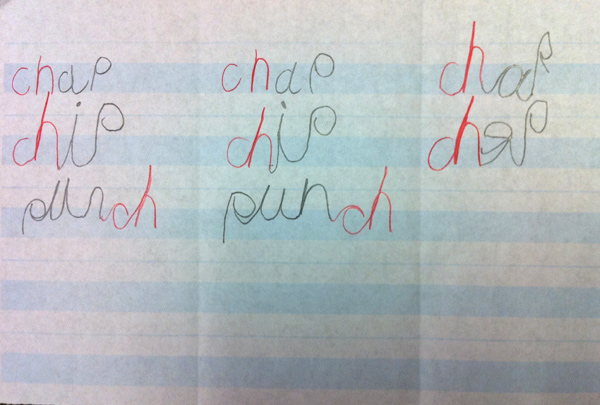 chap chap chap
chip chip
punch punch